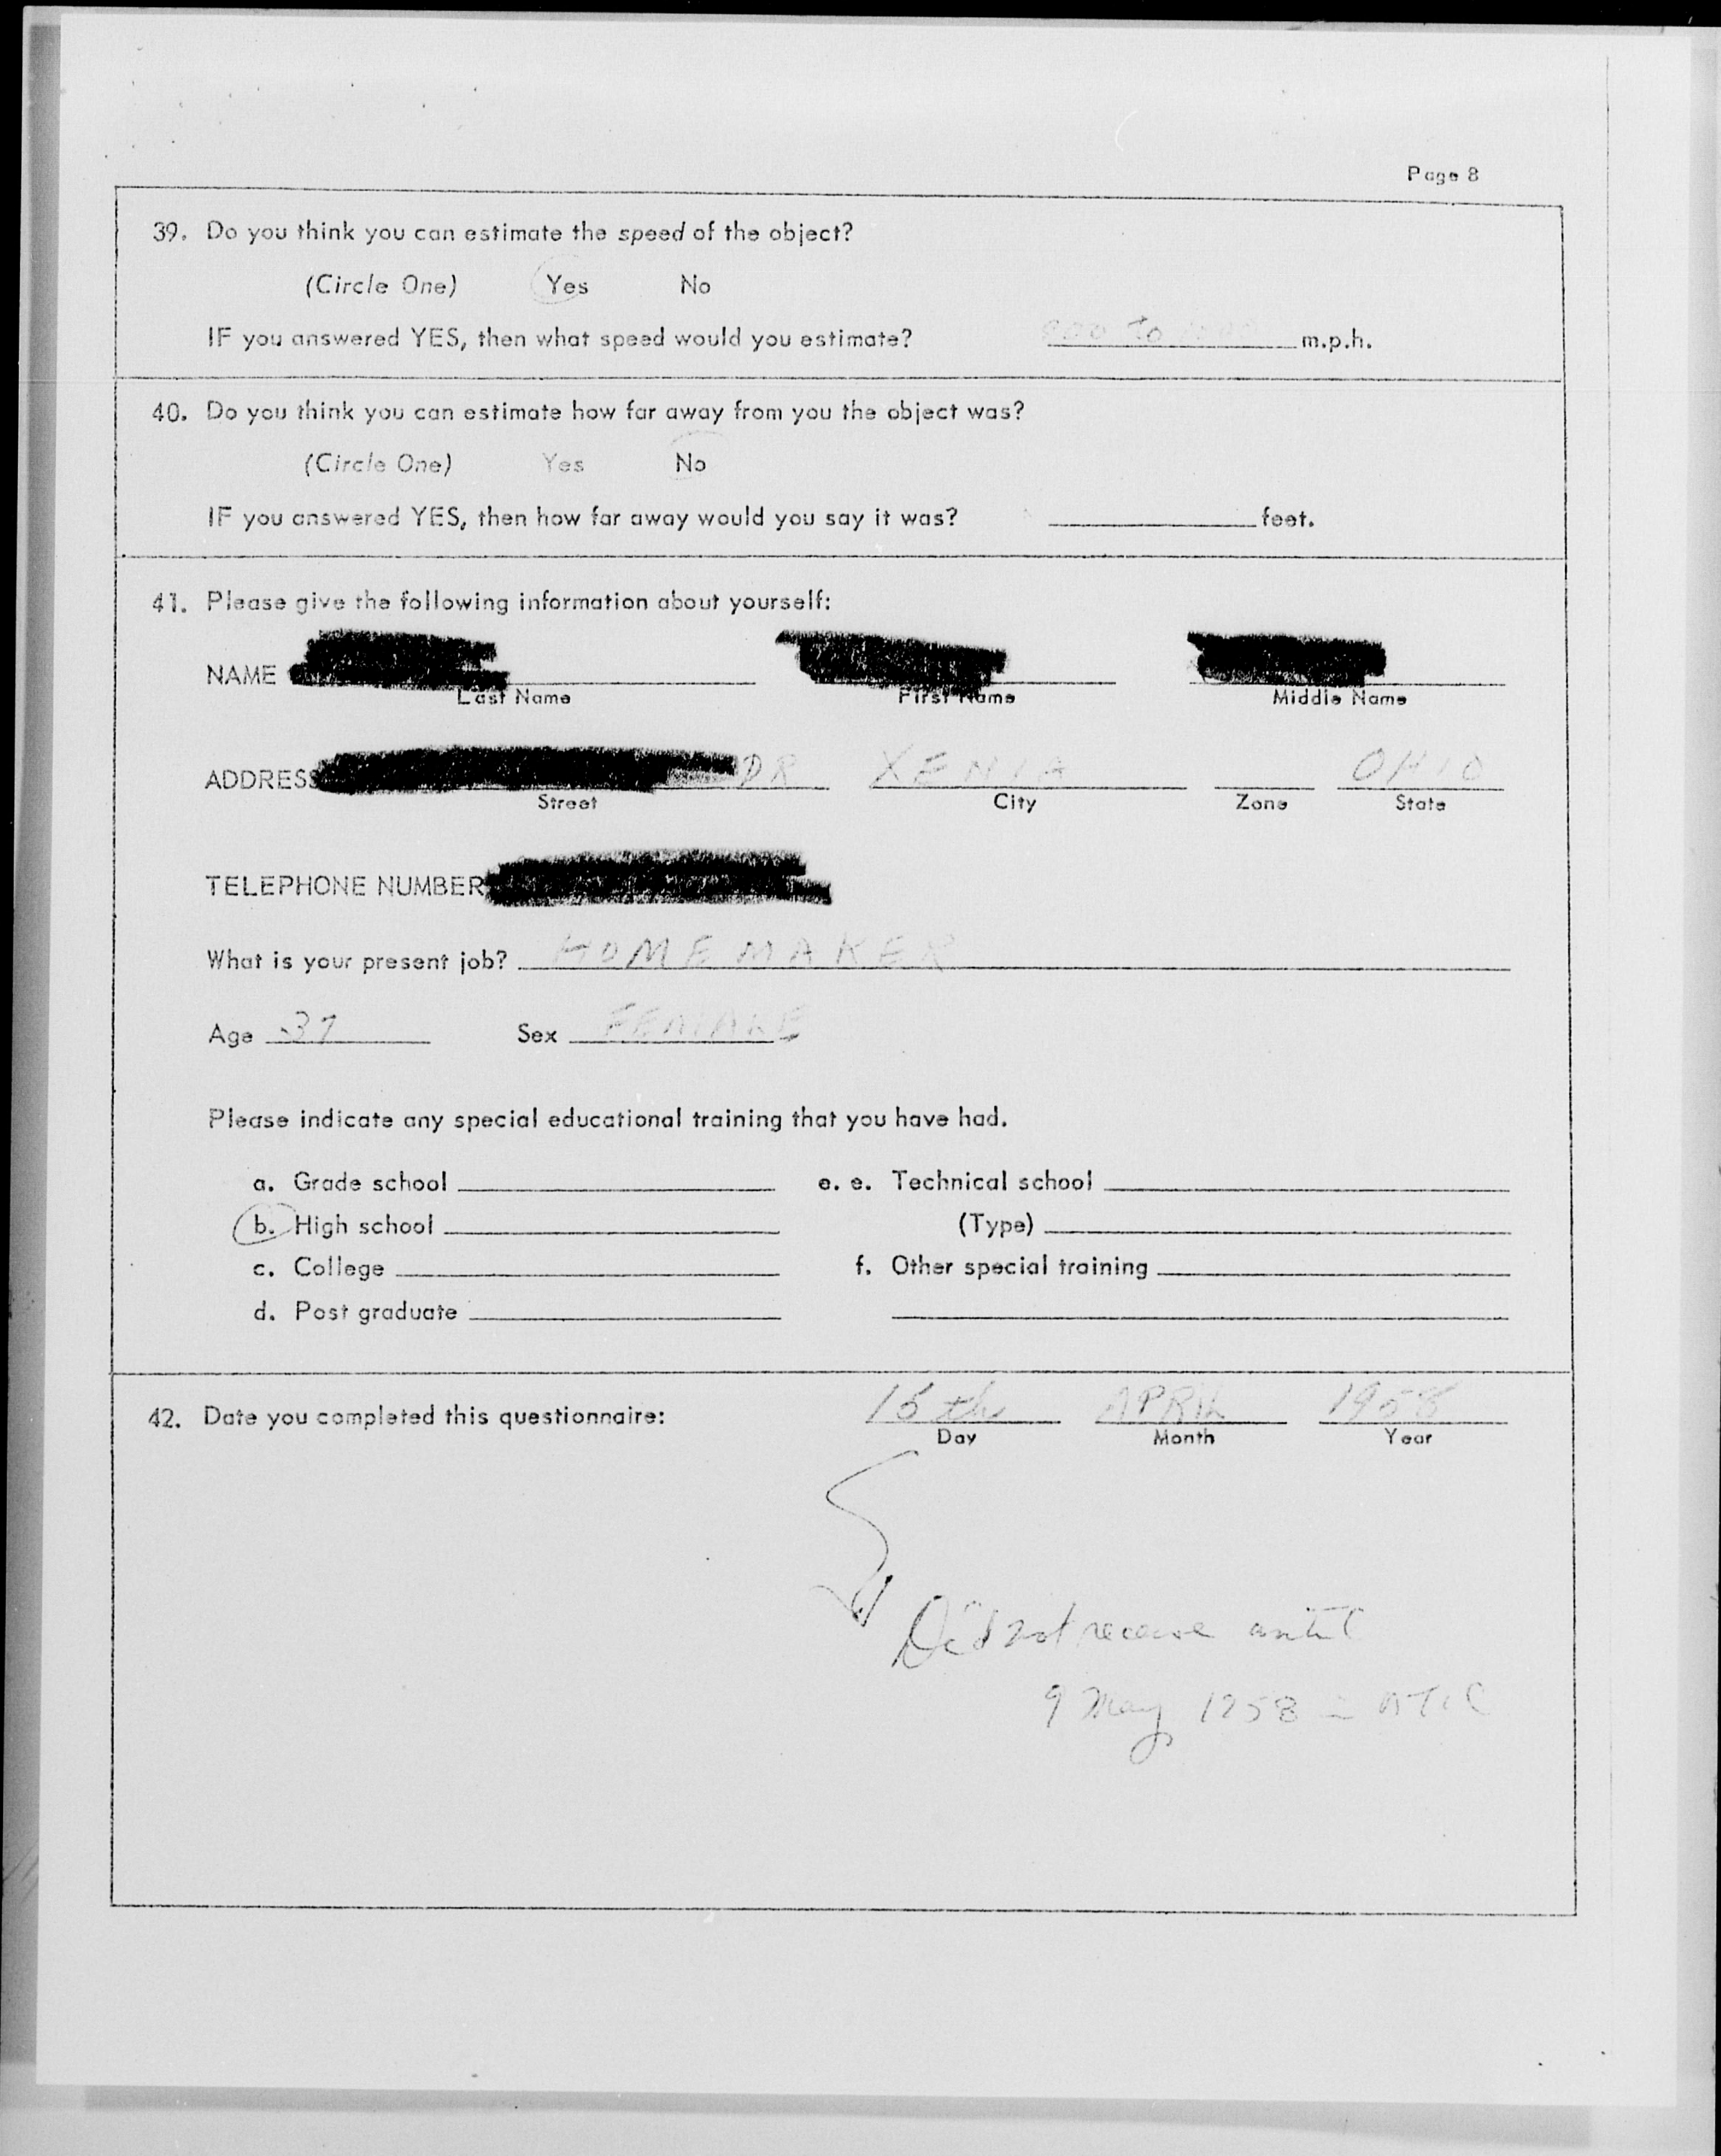 Page 8
39. Do you think you can estimate the speed of the object?
(Circle One) Yes No
IF you answered YES, then what speed would you estimate? to m.p.h.
40. Do you think you can estimate how far away from you the object was?
(Circle One) Yes No
IF you answered YES, then how far away would you say it was? feet.
41. Please give the following information about yourself:
NAME
Last Name First Name Middle Name
ADDRESS DR XENIA OHIO
Street City Zone State
TELEPHONE NUMBER
What is your present job? HOMEMAKER
Age 37 Sex FEMALE
Please indicate any special educational training that you have had.
a. Grade school e. e. Technical school
b. High school (Type)
c. College f. Other special training
d. Post graduate
42. Date you completed this questionnaire: 15th APRIL 1958
Day Month Year
Did not receive until
9 May 1958 - ATIC